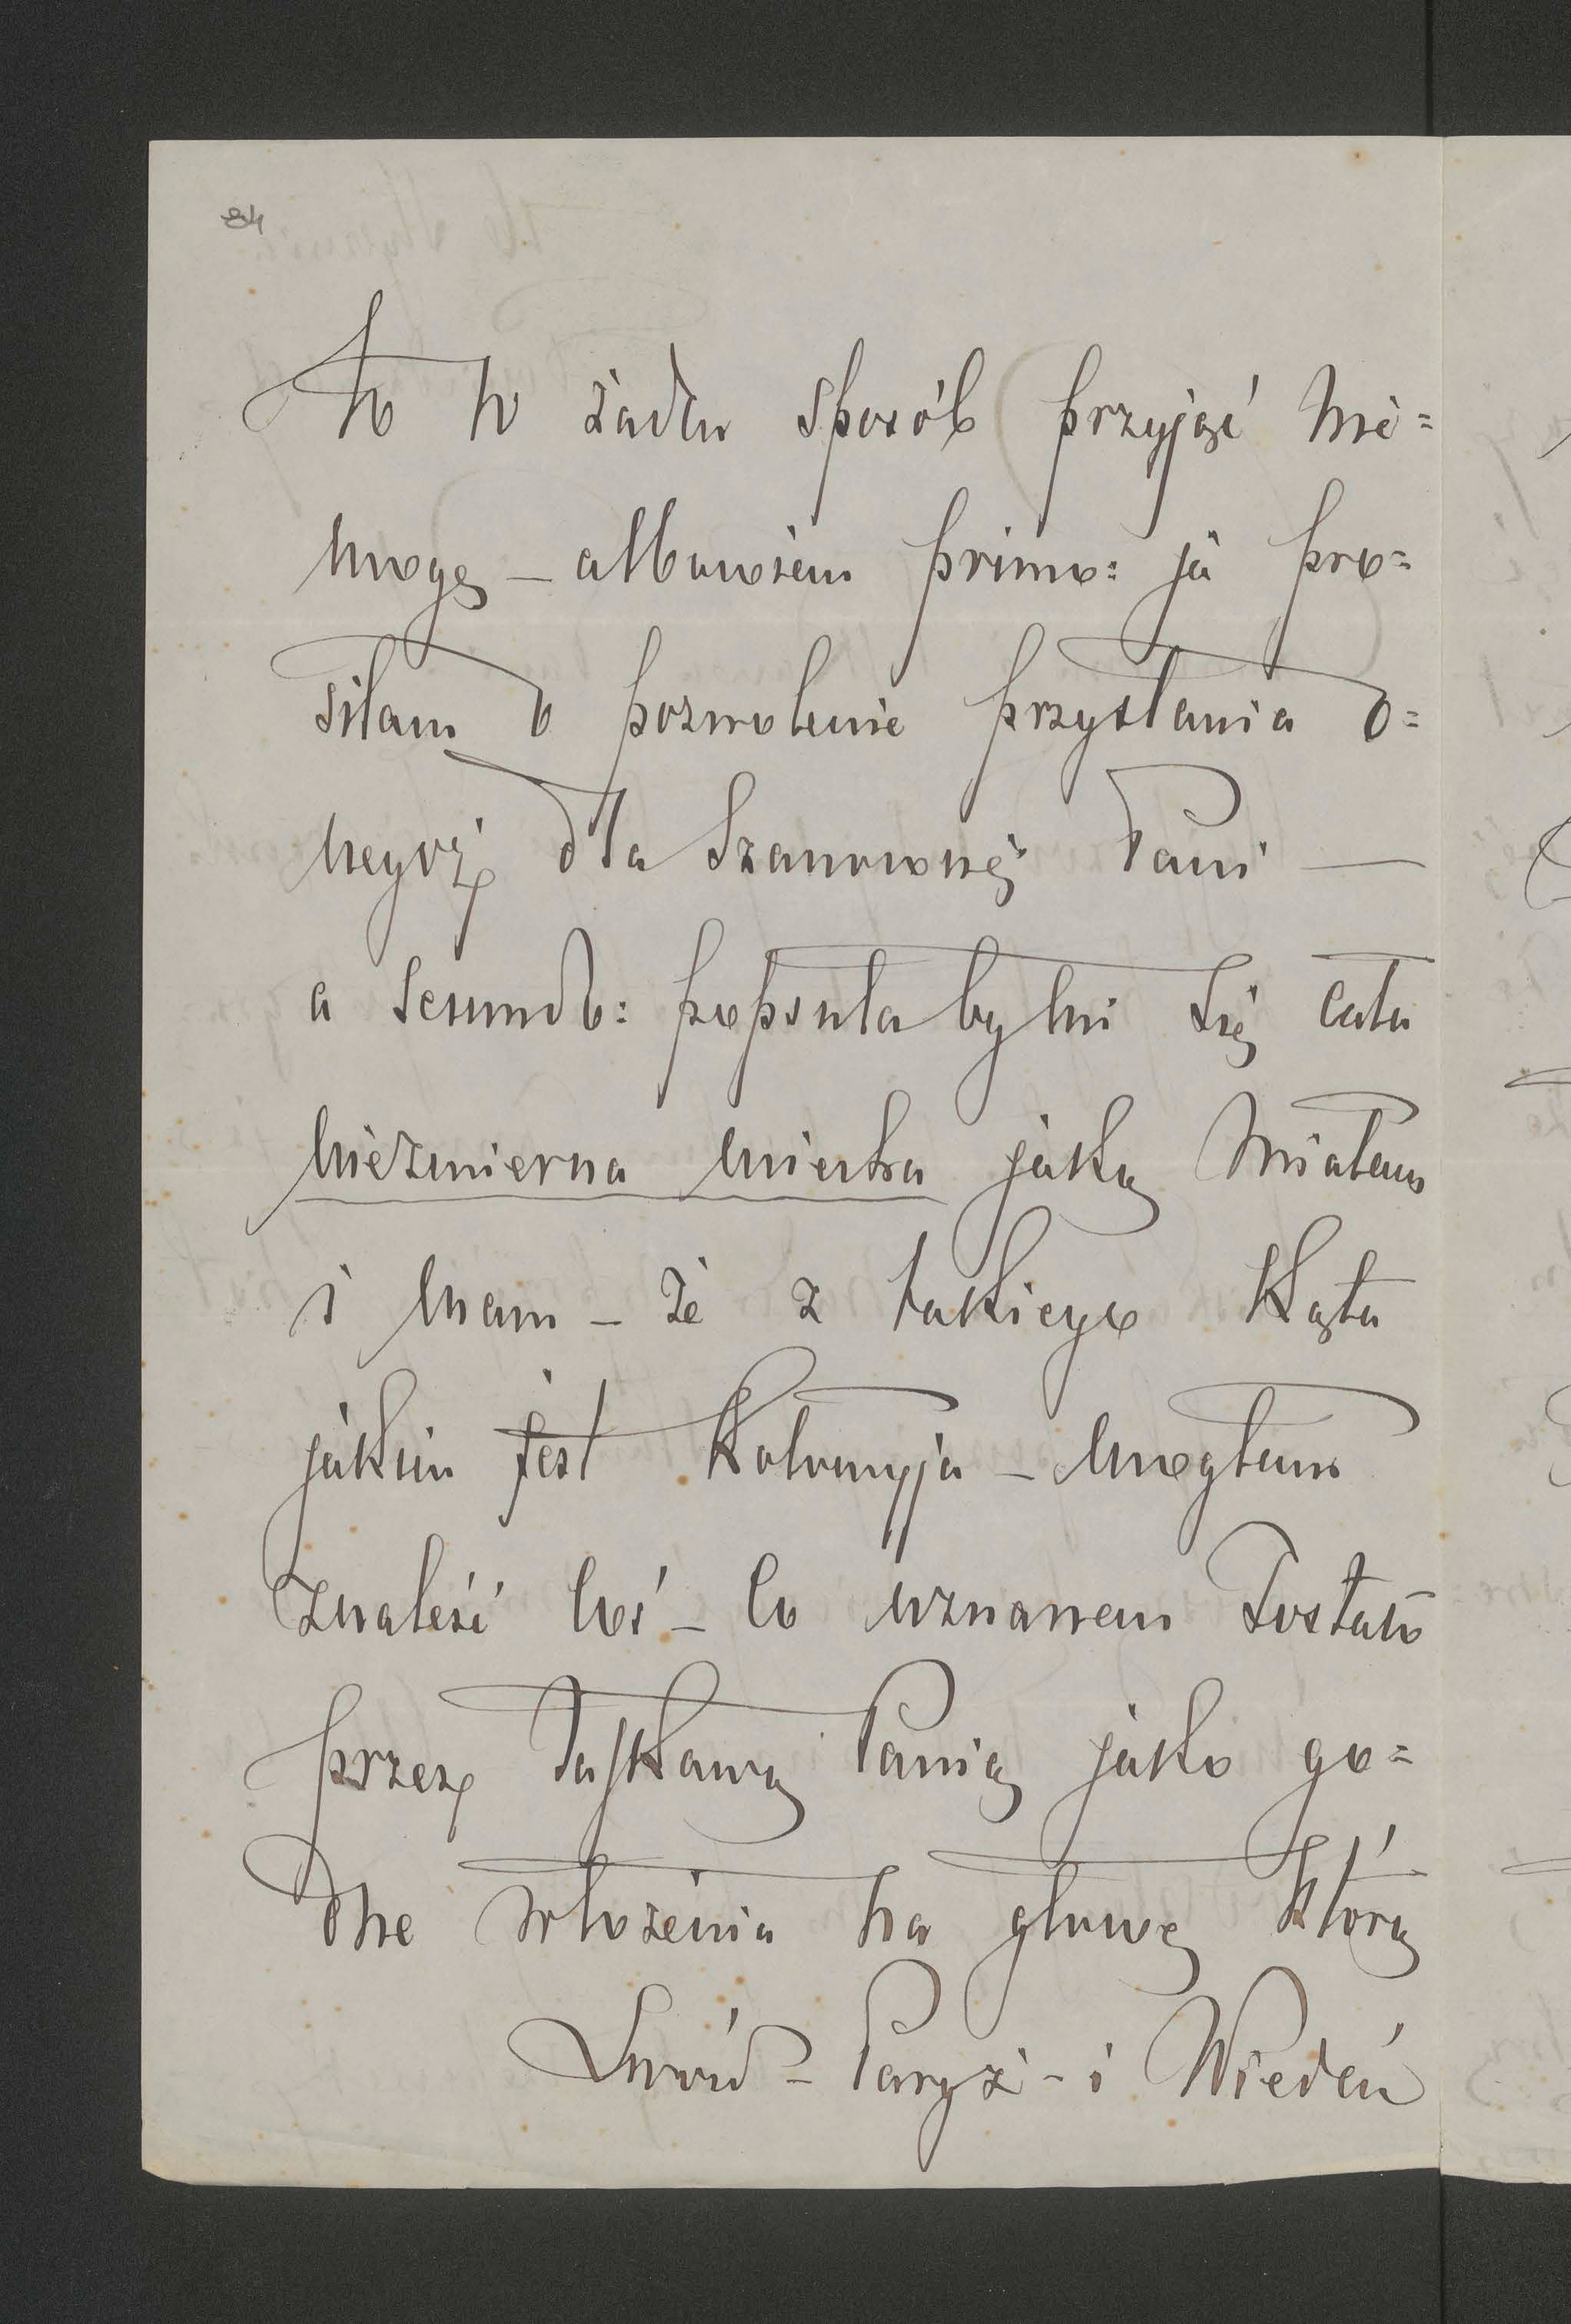 84
to w żaden sposób przyjąć nie=
mogę – albowiem primo: ja pro=
siłam o pozwolenie przysłania o=
negoż dla Szanownéj Pani —
a secundo: popsuła by mi się cała
niezmierna uciecha jaką miałam
i mam – że z takiego kąta
jakim jest Kołomyja – mogłam
znaleść coś – co uznanem zostało
przez łaskawą Panią jako go=
dne włożenia na głowę którą
Lwów – Paryż – i Wiedeń